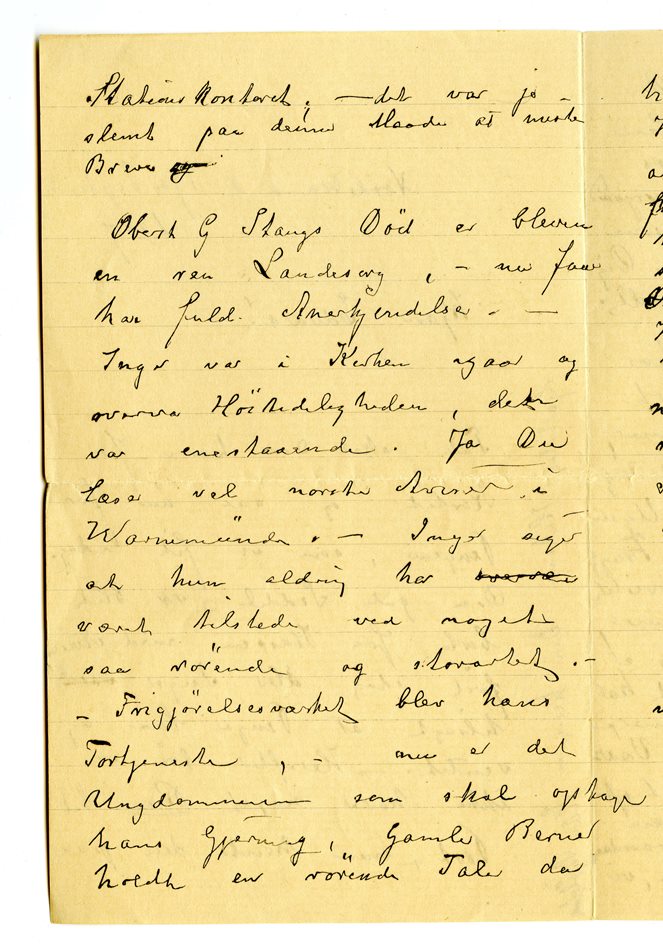 Stationskontoret, – det var jo
slemt paa denne Maade at miste
Breve
Oberst G Stangs Död er bleven
en ren Landesorg, – nu faar
han fuld Anerkjendelse. –
Inger var i Kirken igaar og
overva Höitideligheden, den
var enestaaende. Ja Du
læser vel norske Aviser i
Warnemünde. – Inger siger
at hun aldrig har
været tilstede ved noget
saa rörende og storartet. –
– Frigjörelsesværket blev hans
Fortjeneste, – nu er det
Ungdommen som skal optage
hans Gjerning, Gamle Berner
holdt en rörende Tale da